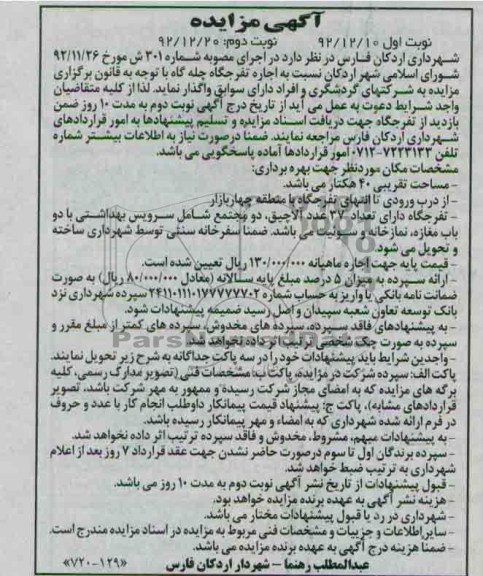 آگهی مزایده
نوبت اول ۹۲/۱۲/۱۰ نوبت دوم: ۹۲/۱۲/۲۰
شهرداری اردکان فارس در نظر دارد در اجرای مصوبه شماره ۳۰۱ ش مورخ ۹۲/۱۱/۲۶
شورای اسلامی شهر اردکان نسبت به اجاره تفرجگاه چله گاه با توجه به قانون برگزاری
مزایده به شرکتهای گردشگری و افراد دارای سوابق واگذار نماید. لذا از کلیه متقاضیان
واجد شرایط دعوت به عمل می آید از تاریخ درج آگهی نوبت دوم به مدت ۱۰ روز ضمن
بازدید از تفرجگاه جهت دریافت اسناد مزایده و تسلیم پیشنهادها به امور قراردادهای
شهرداری اردکان فارس مراجعه نمایند. ضمنا درصورت نیاز به اطلاعات بیشتر شماره
تلفن ۷۲۲۳۱۳۳-۰۷۱۲ امور قراردادها آماده پاسخگویی می باشد.
مشخصات مکان موردنظر جهت بهره برداری:
- مساحت تقریبی ۴۰ هکتار می باشد.
- از درب ورودی تا انتهای تفرجگاه با منطقه چهاربازار
- تفرجگاه دارای تعداد ۳۷ عدد آلاچیق، دو مجتمع شامل سرویس بهداشتی با دو
باب مغازه، نمازخانه و سوئیت می باشد. ضمنا سفرخانه سنتی توسط شهرداری ساخته
و تحویل می شود.
- قیمت پایه جهت اجاره ماهیانه ۱۳۰/۰۰۰/۰۰۰ ریال تعیین شده است.
- ارائه سپرده به میزان ۵ درصد مبلغ پایه سالانه (معادل ۸۰/۰۰۰/۰۰۰ ریال) به صورت
ضمانت نامه بانکی یا واریز به حساب شماره سپرده شهرداری نزد
بانک توسعه تعاون شعبه سپیدان و اصل رسید ضمیمه پیشنهادات شود.
- به پیشنهادهای فاقد سپرده، سپرده های مخدوش، سپرده های کمتر از مبلغ مقرر و
سپرده به صورت چک شخصی ترتیب اثر داده نخواهد شد.
- واجدین شرایط باید پیشنهادات خود را در سه پاکت جداگانه به شرح زیر تحویل نمایند.
پاکت الف: سپرده شرکت در مزایده، پاکت ب: مشخصات فنی (تصویر مدارک رسمی، کلیه
برگه های مزایده که به امضای مجاز شرکت رسیده و ممهور به مهر شرکت باشد، تصویر
قراردادهای مشابه)، پاکت ج: پیشنهاد قیمت پیمانکار داوطلب انجام کار با عدد و حروف
در فرم ارائه شده شهرداری که به امضاء و مهر پیمانکار رسیده باشد.
- به پیشنهادات مبهم، مشروط، مخدوش و فاقد سپرده ترتیب اثر داده نخواهد شد.
- سپرده برندگان اول تا سوم درصورت حاضر نشدن جهت عقد قرارداد ۷ روز بعد از اعلام
شهرداری به ترتیب ضبط خواهد شد.
- قبول پیشنهادات از تاریخ نشر آگهی نوبت دوم به مدت ۱۰ روز می باشد.
- هزینه نشر آگهی به عهده برنده مزایده خواهد بود.
- شهرداری در رد یا قبول پیشنهادات مختار می باشد.
- سایر اطلاعات و جزییات و مشخصات فنی مربوط به مزایده در اسناد مزایده مندرج است.
- ضمنا هزینه درج آگهی به عهده برنده مزایده می باشد.
عبدالمطلب رهنما - شهردار اردکان فارس «۷۲۰-۱۲۹»